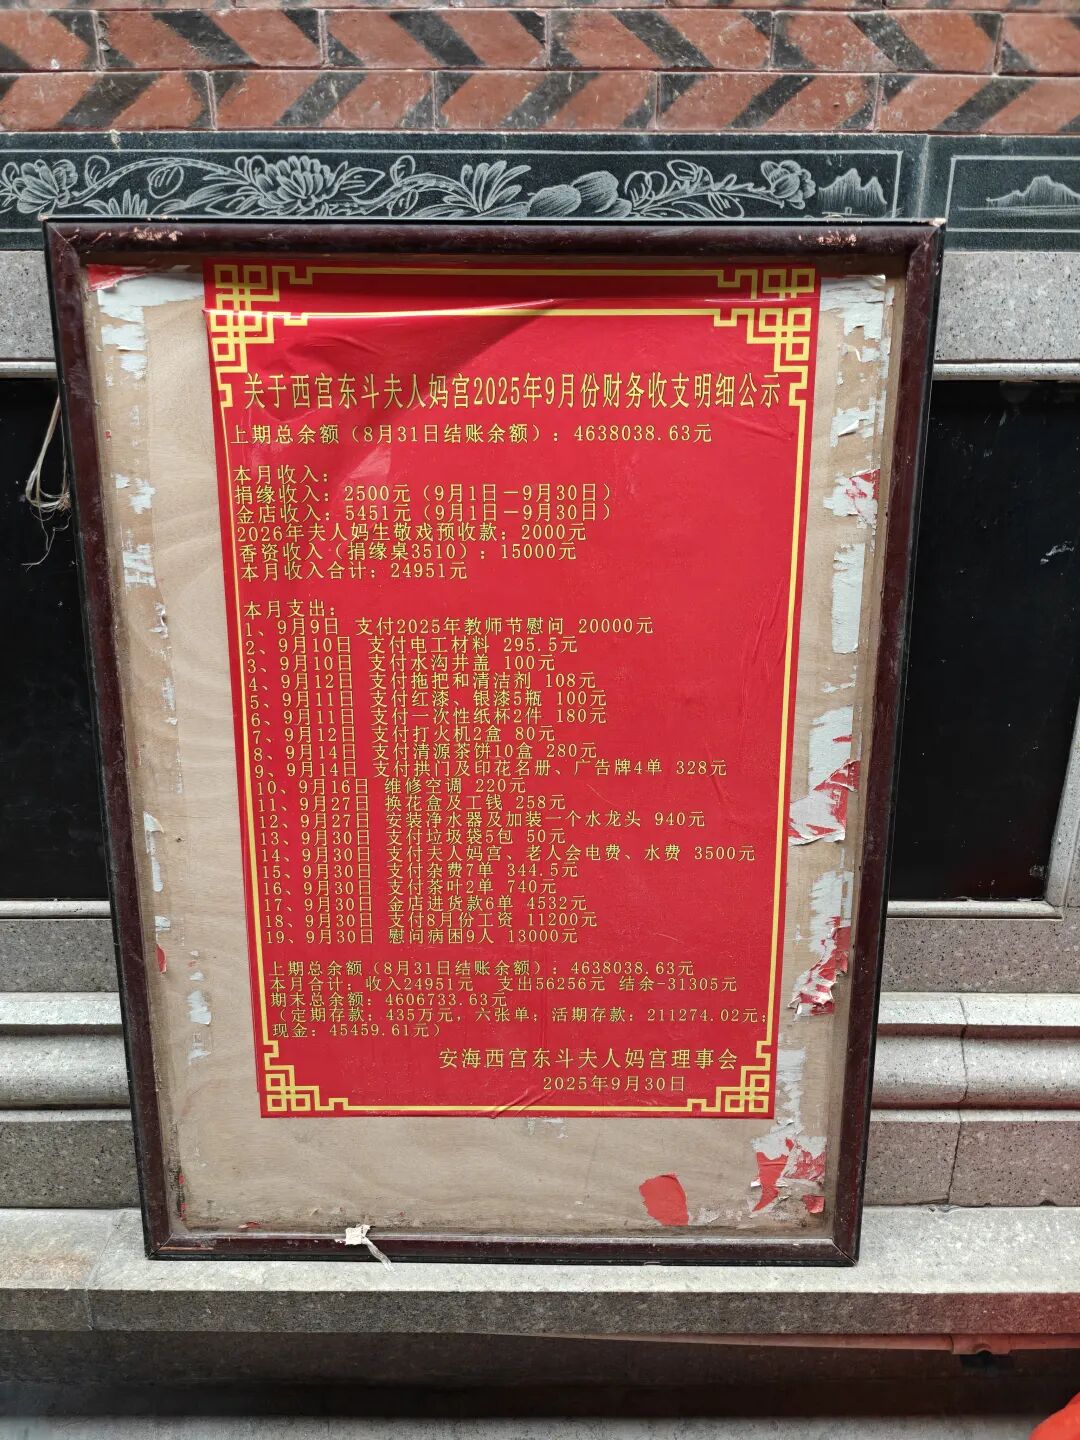 关于西宫东斗夫人妈宫2025年9月份财务收支明细公示
上期总余额（8月31日结账余额）：4638038.63元
本月收入：
捐缘收入：2500元（9月1日－9月30日）
金店收入：5451元（9月1日－9月30日）
2026年夫人妈生敬戏预收款：2000元
香资收入（捐缘桌3510）：15000元
本月收入合计：24951元
本月支出：
1、9月9日 支付2025年教师节慰问 20000元
2、9月10日 支付电工材料 295.5元
3、9月10日 支付水沟井盖 100元
4、9月12日 支付拖把和清洁剂 108元
5、9月11日 支付红漆、银漆5瓶 100元
6、9月11日 支付一次性纸杯2件 180元
7、9月12日 支付打火机2盒 80元
8、9月14日 支付清源茶饼10盒 280元
9、9月14日 支付拱门及印花名册、广告牌4单 328元
10、9月16日 维修空调 220元
11、9月27日 换花盒及工钱 258元
12、9月27日 安装净水器及加装一个水龙头 940元
13、9月30日 支付垃圾袋5包 50元
14、9月30日 支付夫人妈宫、老人会电费、水费 3500元
15、9月30日 支付杂费7单 344.5元
16、9月30日 支付茶叶2单 740元
17、9月30日 金店进货款6单 4532元
18、9月30日 支付8月份工资 11200元
19、9月30日 慰问病困9人 13000元
上期总余额（8月31日结账余额）：4638038.63元
本月合计：收入24951元 支出56256元 结余-31305元
期末总余额：4606733.63元
（定期存款：435万元，六张单；活期存款：211274.02元；
现金：45459.61元）
安海西宫东斗夫人妈宫理事会
2025年9月30日